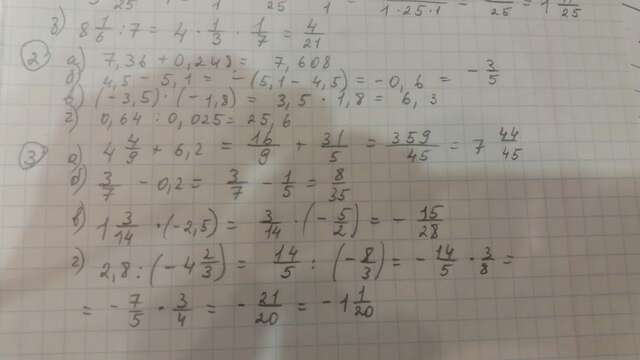 25 1 1·25·1 25 25
в) 8 1/6 : 7 = 4 · 1/3 · 1/7 = 4/21
2 а) 7,36 + 0,248 = 7,608
б) 4,5 - 5,1 = -(5,1 - 4,5) = -0,6 = -3/5
в) (-3,5) · (-1,8) = 3,5 · 1,8 = 6,3
г) 0,64 : 0,025 = 25,6
3 а) 4 4/9 + 6,2 = 16/9 + 31/5 = 359/45 = 7 44/45
б) 3/7 - 0,2 = 3/7 - 1/5 = 8/35
в) 1 3/14 · (-2,5) = 3/14 · (-5/2) = - 15/28
г) 2,8 : (-4 2/3) = 14/5 : (-8/3) = - 14/5 · 3/8 =
= - 7/5 · 3/4 = - 21/20 = -1 1/20